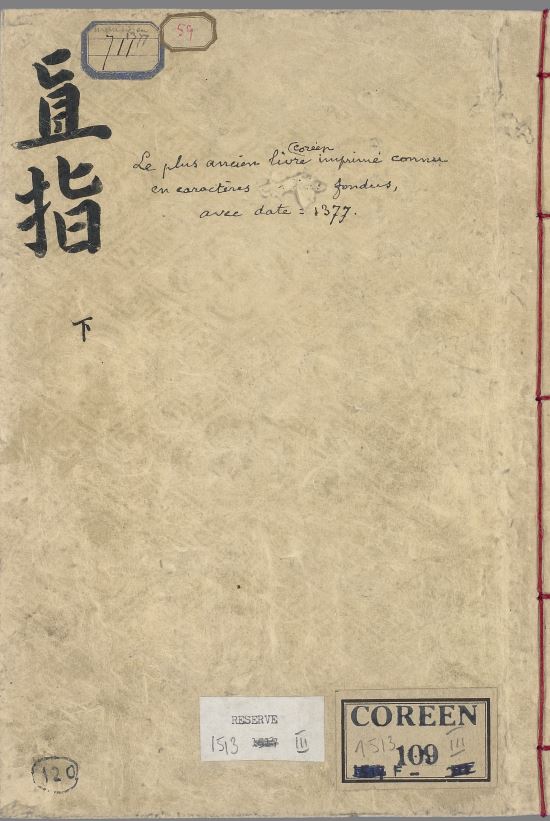 711
59
直指
下
Le plus ancien livre coreen imprimé connu
en caractères fondus,
avec date = 1377.
RESERVE
1513 III
COREEN
1513 III
109
F -
120